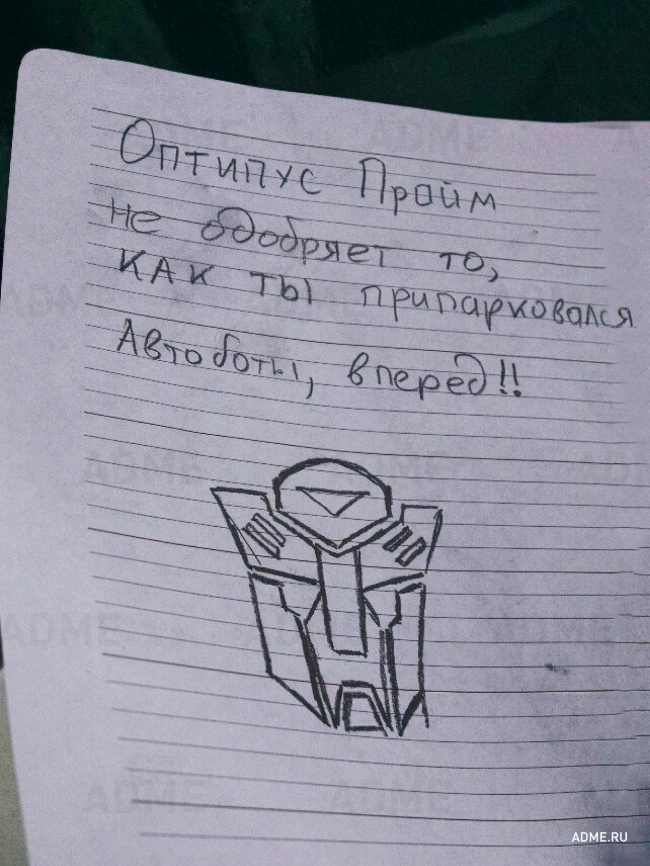 Оптипус Прайм
не одобряет то,
как ты припарковался
Автоботы, вперед!!
ADME.RU